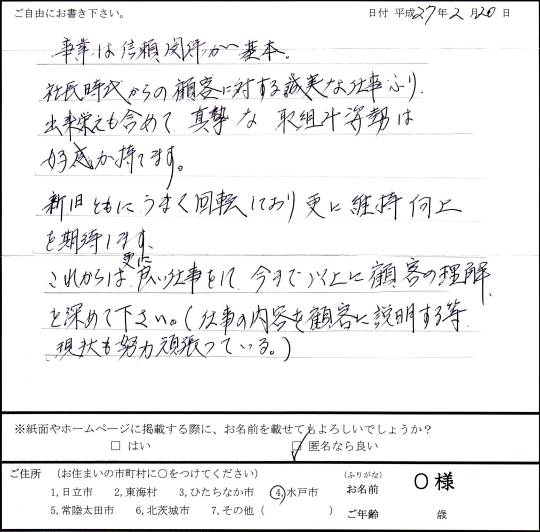 ご自由にお書き下さい。 日付 平成27年2月20日
事業は信頼関係が基本。
社長時代からの顧客に対する誠実な仕事ぶり.
出来栄えも含めて 真摯な 取組み姿勢は
好感が持てます。
新旧ともにうまく回転しており更に維持向上
を期待します、
更に
これからは 良い仕事をして 今まで以上に顧客の理解
を深めて下さい。(仕事の内容を顧客に説明する等
現状も努力頑張っている。)
※紙面やホームページに掲載する際に、お名前を載せてもよろしいでしょうか?
□ はい ☑ 匿名なら良い
ご住所 (お住まいの市町村に○をつけてください) (ふりがな)
1,日立市 2,東海村 3,ひたちなか市 4,水戸市 お名前 〇様
5,常陸太田市 6,北茨城市 7,その他( ) ご年齢 歳